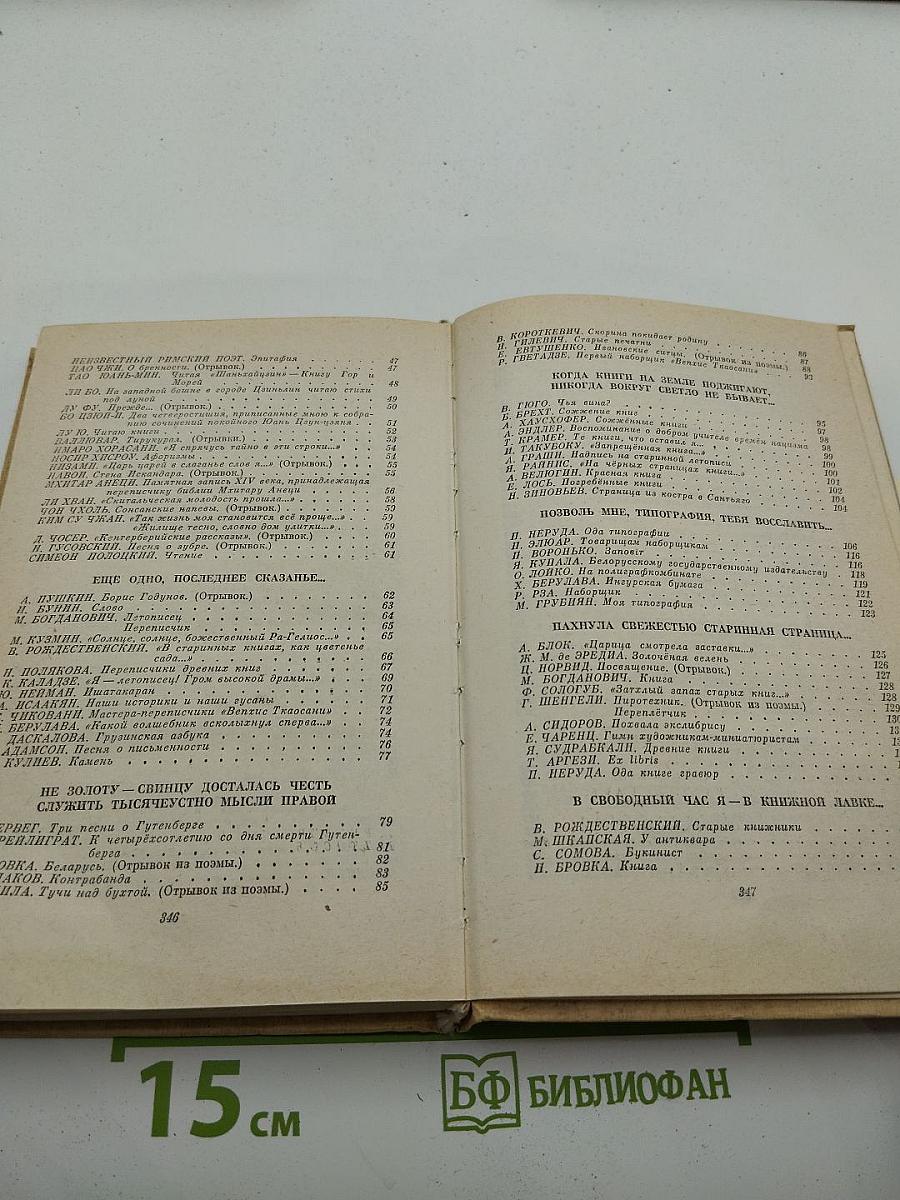 НЕИЗВЕСТНЫЙ РИМСКИЙ ПОЭТ. Эпитафия . . . . . . 47
ЦАО ЧЖИ. О бренности. (Отрывок.) . . . . . . 47
ТАО ЮАНЬ-МИН. Читая «Шаньхайцзин» — Книгу Гор и
Морей . . . . . . 48
ЛИ БО. На западной башне в городе Цзиньлин читаю стихи
под луной . . . . . . 49
ДУ ФУ. Прежде... (Отрывок.) . . . . . . 50
БО ЦЗЮЙ-И. Два четверостишия, приписанные мною к собра-
нию сочинений покойного Юань Цзун-цзяня . . 51
ЛУ Ю. Читаю книги . . . . . . 52
ВАЛЛЮВАР. Тирукурал. (Отрывки.) . . . . . . 53
ИМАРО ХОРАСАНИ. «Я спрячусь тайно в эти строки...» . . 54
НОСИР ХИСРОУ. Афоризмы . . . . . . 54
НИЗАМИ. «Царь царей в слаганье слов я...» (Отрывок.) . . . 55
НАВОИ. Стена Искандара. (Отрывок.) . . . . . . 55
МХИТАР АНЕЦИ. Памятная запись XIV века, принадлежащая
переписчику библии Мхитару Анеци . . . . . . 56
ЛИ ХВАН. «Скитальческая молодость прошла...» . . . . 58
ЧОН ЧХОЛЬ. Сонсанские напевы. (Отрывок.) . . . . 59
КИМ СУ ЧЖАН. «Так жизнь моя становится всё проще...» . . 59
«Жилище тесно, словно дом улитки...» . . 59
Д. ЧОСЕР. «Кентерберийские рассказы». (Отрывок.) . . . 60
Н. ГУСОВСКИЙ. Песня о зубре. (Отрывок.) . . . . 61
СИМЕОН ПОЛОЦКИЙ. Чтение . . . . . . 61
ЕЩЕ ОДНО, ПОСЛЕДНЕЕ СКАЗАНЬЕ...
А. ПУШКИН. Борис Годунов. (Отрывок.) . . . . . . 62
И. БУНИН. Слово . . . . . . 63
М. БОГДАНОВИЧ. Летописец . . . . . . 64
Переписчик . . . . . . 65
М. КУЗМИН. «Солнце, солнце, божественный Ра-Гелиос...» . . 65
В. РОЖДЕСТВЕНСКИЙ. «В старинных книгах, как цветенье
сада...» . . . . . . 66
Н. ПОЛЯКОВА. Переписчики древних книг . . . . . . 67
К. КАЛАДЗЕ. «Я — летописец! Гром высокой драмы...» . . 69
Ю. НЕЙМАН. Ишатакаран . . . . . . 70
А. ИСААКЯН. Наши историки и наши гусаны . . . . 71
ЧИКОВАНИ. Мастера-переписчики «Вепхис Ткаосани» . . 72
БЕРУЛАВА. «Какой волшебник всколыхнул сперва...» . . 74
ДАСКАЛОВА. Грузинская азбука . . . . . . 74
АДАМСОН. Песня о письменности . . . . . . 76
КУЛИЕВ. Камень . . . . . . 77
НЕ ЗОЛОТУ — СВИНЦУ ДОСТАЛАСЬ ЧЕСТЬ
СЛУЖИТЬ ТЫСЯЧЕУСТНО МЫСЛИ ПРАВОЙ
ЕРВЕГ. Три песни о Гутенберге . . . . . . 79
РЕЙЛИГРАТ. К четырёхсотлетию со дня смерти Гутен-
берга . . . . . . 81
ОВКА. Беларусь. (Отрывок из поэмы.) . . . . . . 82
МАКОВ. Контрабанда . . . . . . 83
Тучи над бухтой. (Отрывок из поэмы.) . . . . 85
346
В. КОРОТКЕВИЧ. Скорина покидает родину . . . . 86
Н. ГИЛЕВИЧ. Старые печатни . . . . . . 87
Е. ЕВТУШЕНКО. Ивановские ситцы. (Отрывок из поэмы.) . . 88
Р. ГВЕТАДЗЕ. Первый наборщик «Вепхис Ткаосани» . . 93
КОГДА КНИГИ НА ЗЕМЛЕ ПОДЖИГАЮТ,
НИКОГДА ВОКРУГ СВЕТЛО НЕ БЫВАЕТ...
В. ГЮГО. Чья вина? . . . . . . 95
Б. БРЕХТ. Сожжение книг . . . . . . 97
А. ХАУСХОФЕР. Сожжённые книги . . . . . .
А. ЭНДЛЕР. Воспоминание о добром учителе времён нацизма 98
Т. КРАМЕР. Те книги, что оставил я... . . . . . . 98
И. ТАКУБОКУ. «Запрещённая книга...» . . . . . . 99
Д. ГРАШИ. Надпись на старинной летописи . . . . 100
Я. РАЙНИС. «На чёрных страницах книги...» . . . . 100
А. ВЕЛЮГИН. Красная книга . . . . . . 101
Е. ЛОСЬ. Погребённые книги . . . . . . 102
Н. ЗИНОВЬЕВ. Страница из костра в Сантьяго . . . . 104
ПОЗВОЛЬ МНЕ, ТИПОГРАФИЯ, ТЕБЯ ВОССЛАВИТЬ...
П. НЕРУДА. Ода типографии . . . . . . 106
П. ЭЛЮАР. Товарищам наборщикам . . . . . . 116
П. ВОРОНЬКО. Заповіт . . . . . . 116
Я. КУПАЛА. Белорусскому государственному издательству . 118
О. ЛОЙКО. На полиграфкомбинате . . . . . . 119
Х. БЕРУЛАВА. Ингурская бумага . . . . . . 121
Р. РЗА. Наборщик . . . . . . 122
М. ГРУБИЯН. Моя типография . . . . . . 123
ПАХНУЛА СВЕЖЕСТЬЮ СТАРИННАЯ СТРАНИЦА...
А. БЛОК. «Царица смотрела заставки...» . . . . . . 125
Ж. М. де ЭРЕДИА. Золочёная велень . . . . . . 126
Ц. НОРВИД. Посвящение. (Отрывок.) . . . . . . 127
М. БОГДАНОВИЧ. Книга . . . . . . 128
Ф. СОЛОГУБ. «Затхлый запах старых книг...» . . . . 128
Г. ШЕНГЕЛИ. Пиротехник. (Отрывок из поэмы.) . . . . 129
Переплётчик . . . . . . 130
А. СИДОРОВ. Похвала экслибрису . . . . . .
Е. ЧАРЕНЦ. Гимн художникам-миниатюристам . . . .
Я. СУДРАБКАЛН. Древние книги . . . . . .
Т. АРГЕЗИ. Ex libris . . . . . .
П. НЕРУДА. Ода книге гравюр . . . . . .
В СВОБОДНЫЙ ЧАС Я — В КНИЖНОЙ ЛАВКЕ...
В. РОЖДЕСТВЕНСКИЙ. Старые книжники . . . . . .
М. ШКАПСКАЯ. У антиквара . . . . . .
С. СОМОВА. Букинист . . . . . .
П. БРОВКА. Книга . . . . . .
347
15 см
БФ БИБЛИОФАН